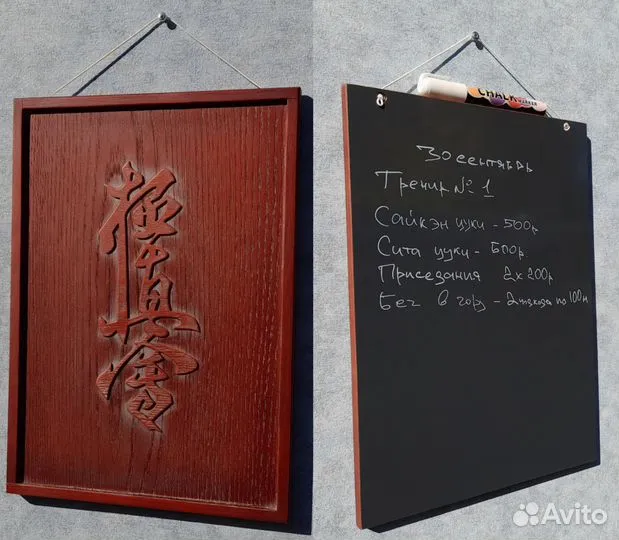 極真會
CHALK
MARKER
30 сентябрь
Трениr № 1
Сайкэн цуки - 500р
Сита цуки - 500р.
Приседания 2x200р
Бег в гору - 2 подхода по 100м
Avito